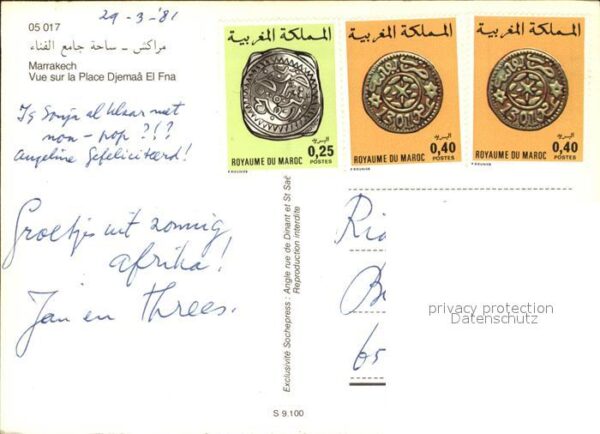 29-3-'81
05 017
مراكش - ساحة جامع الفناء
Marrakech
Vue sur la Place Djemaâ El Fna
Is Sonja al klaar met
non-pop ?!?
Angeline Gefeliciteerd!
Groetjes uit zonnig
afrika!
Jan en Threes.
المملكة المغربية
البريد
0,25
ROYAUME DU MAROC POSTES
المملكة المغربية
البريد
0,40
ROYAUME DU MAROC POSTES
المملكة المغربية
البريد
0,40
ROYAUME DU MAROC POSTES
Exclusivité Sochepress : Angle rue de Dinant et St Saë
Reproduction interdite
S 9.100
65
privacy protection
Datenschutz